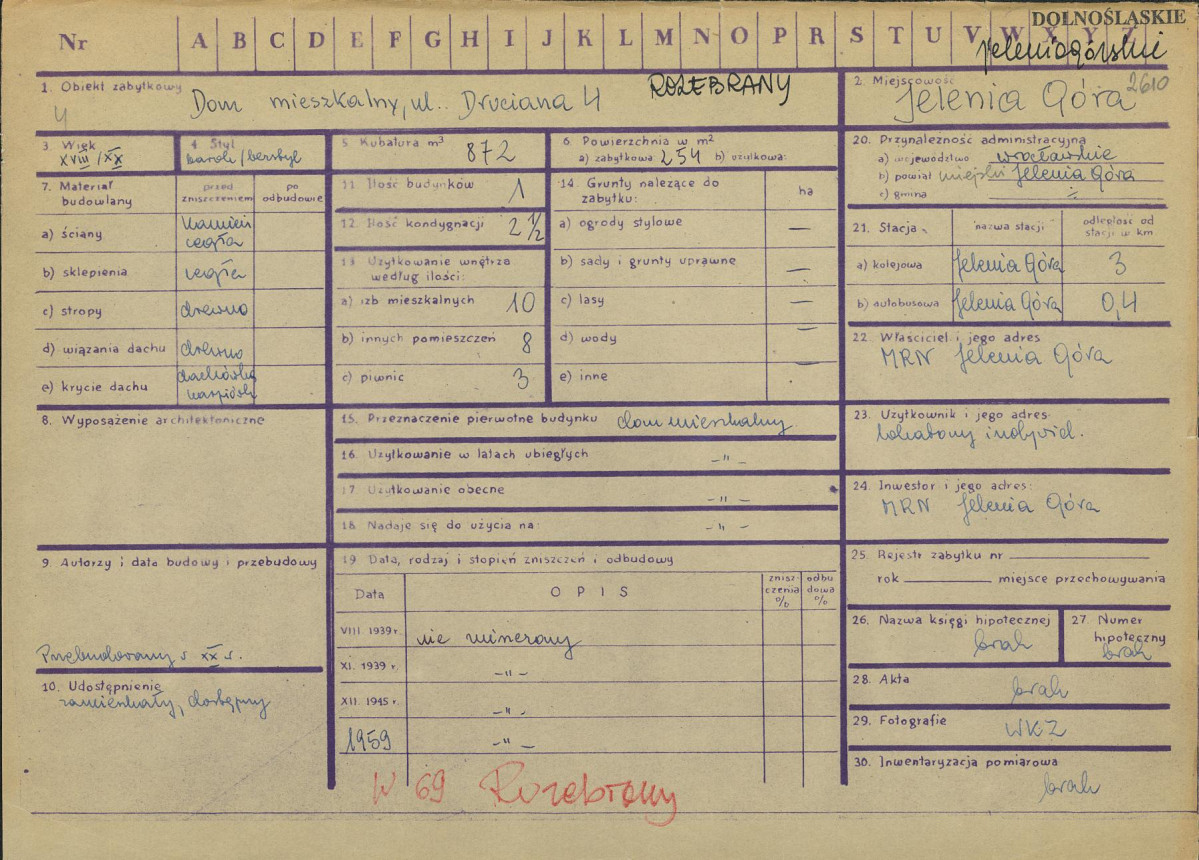 DOLNOŚLĄSKIE
Nr A B C D E F G H I J K L M N O P R S T U V W X Y Z
jeleniogórskie
1. Obiekt zabytkowy
4
Dom mieszkalny, ul. Druciana 4
ROZEBRANY
2. Miejscowość
2610
Jelenia Góra
3. Wiek
XVIII/XX
4. Styl
barok/bezstyl
5. Kubatura m³
872
6. Powierzchnia w m²
a) zabytkowa 254 b) użytkowa:
7. Materiał budowlany
przed zniszczeniem
po odbudowie
a) ściany
kamień
cegła
b) sklepienia
cegła
c) stropy
drewno
d) wiązania dachu
drewno
e) krycie dachu
dachówka
8. Wyposażenie architektoniczne
9. Autorzy i data budowy i przebudowy
Przebudowany w XX w.
10. Udostępnienie
zamieszkały, dostępny
11. Ilość budynków
1
12. Ilość kondygnacji
2 1/2
13. Użytkowanie wnętrza według ilości:
a) izb mieszkalnych
10
b) innych pomieszczeń
8
c) piwnic
3
14. Grunty należące do zabytku:
ha
a) ogrody stylowe
—
b) sady i grunty uprawne
—
c) lasy
—
d) wody
—
e) inne
—
15. Przeznaczenie pierwotne budynku dom mieszkalny
16. Użytkowanie w latach ubiegłych
-"-
17. Użytkowanie obecne
-"-
18. Nadaje się do użycia na:
-"-
19. Data, rodzaj i stopień zniszczeń i odbudowy
Data
OPIS
zniszczenia %
odbudowa %
VIII. 1939 r.
XI. 1939 r.
-"-
XII. 1945 r.
-"-
1959
-"-
W 69 Rozebrany
20. Przynależność administracyjna
a) województwo wrocławskie
b) powiat miejski Jelenia Góra
c) gmina ÷
21. Stacja
nazwa stacji
odległość od stacji w km.
a) kolejowa
Jelenia Góra
3
b) autobusowa
Jelenia Góra
0,4
22. Właściciel i jego adres
MRN Jelenia Góra
23. Użytkownik i jego adres
lokatorzy indywid.
24. Inwestor i jego adres:
MRN Jelenia Góra
25. Rejestr zabytku nr
rok miejsce przechowywania
26. Nazwa księgi hipotecznej
brak
27. Numer hipoteczny
brak
28. Akta
brak
29. Fotografie
WKZ
30. Inwentaryzacja pomiarowa
brak